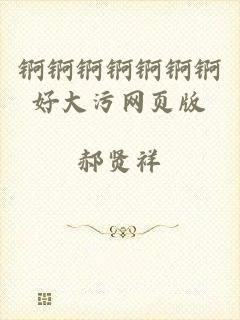 锕锕锕锕锕锕锕
好大污网页版
郝贤祥